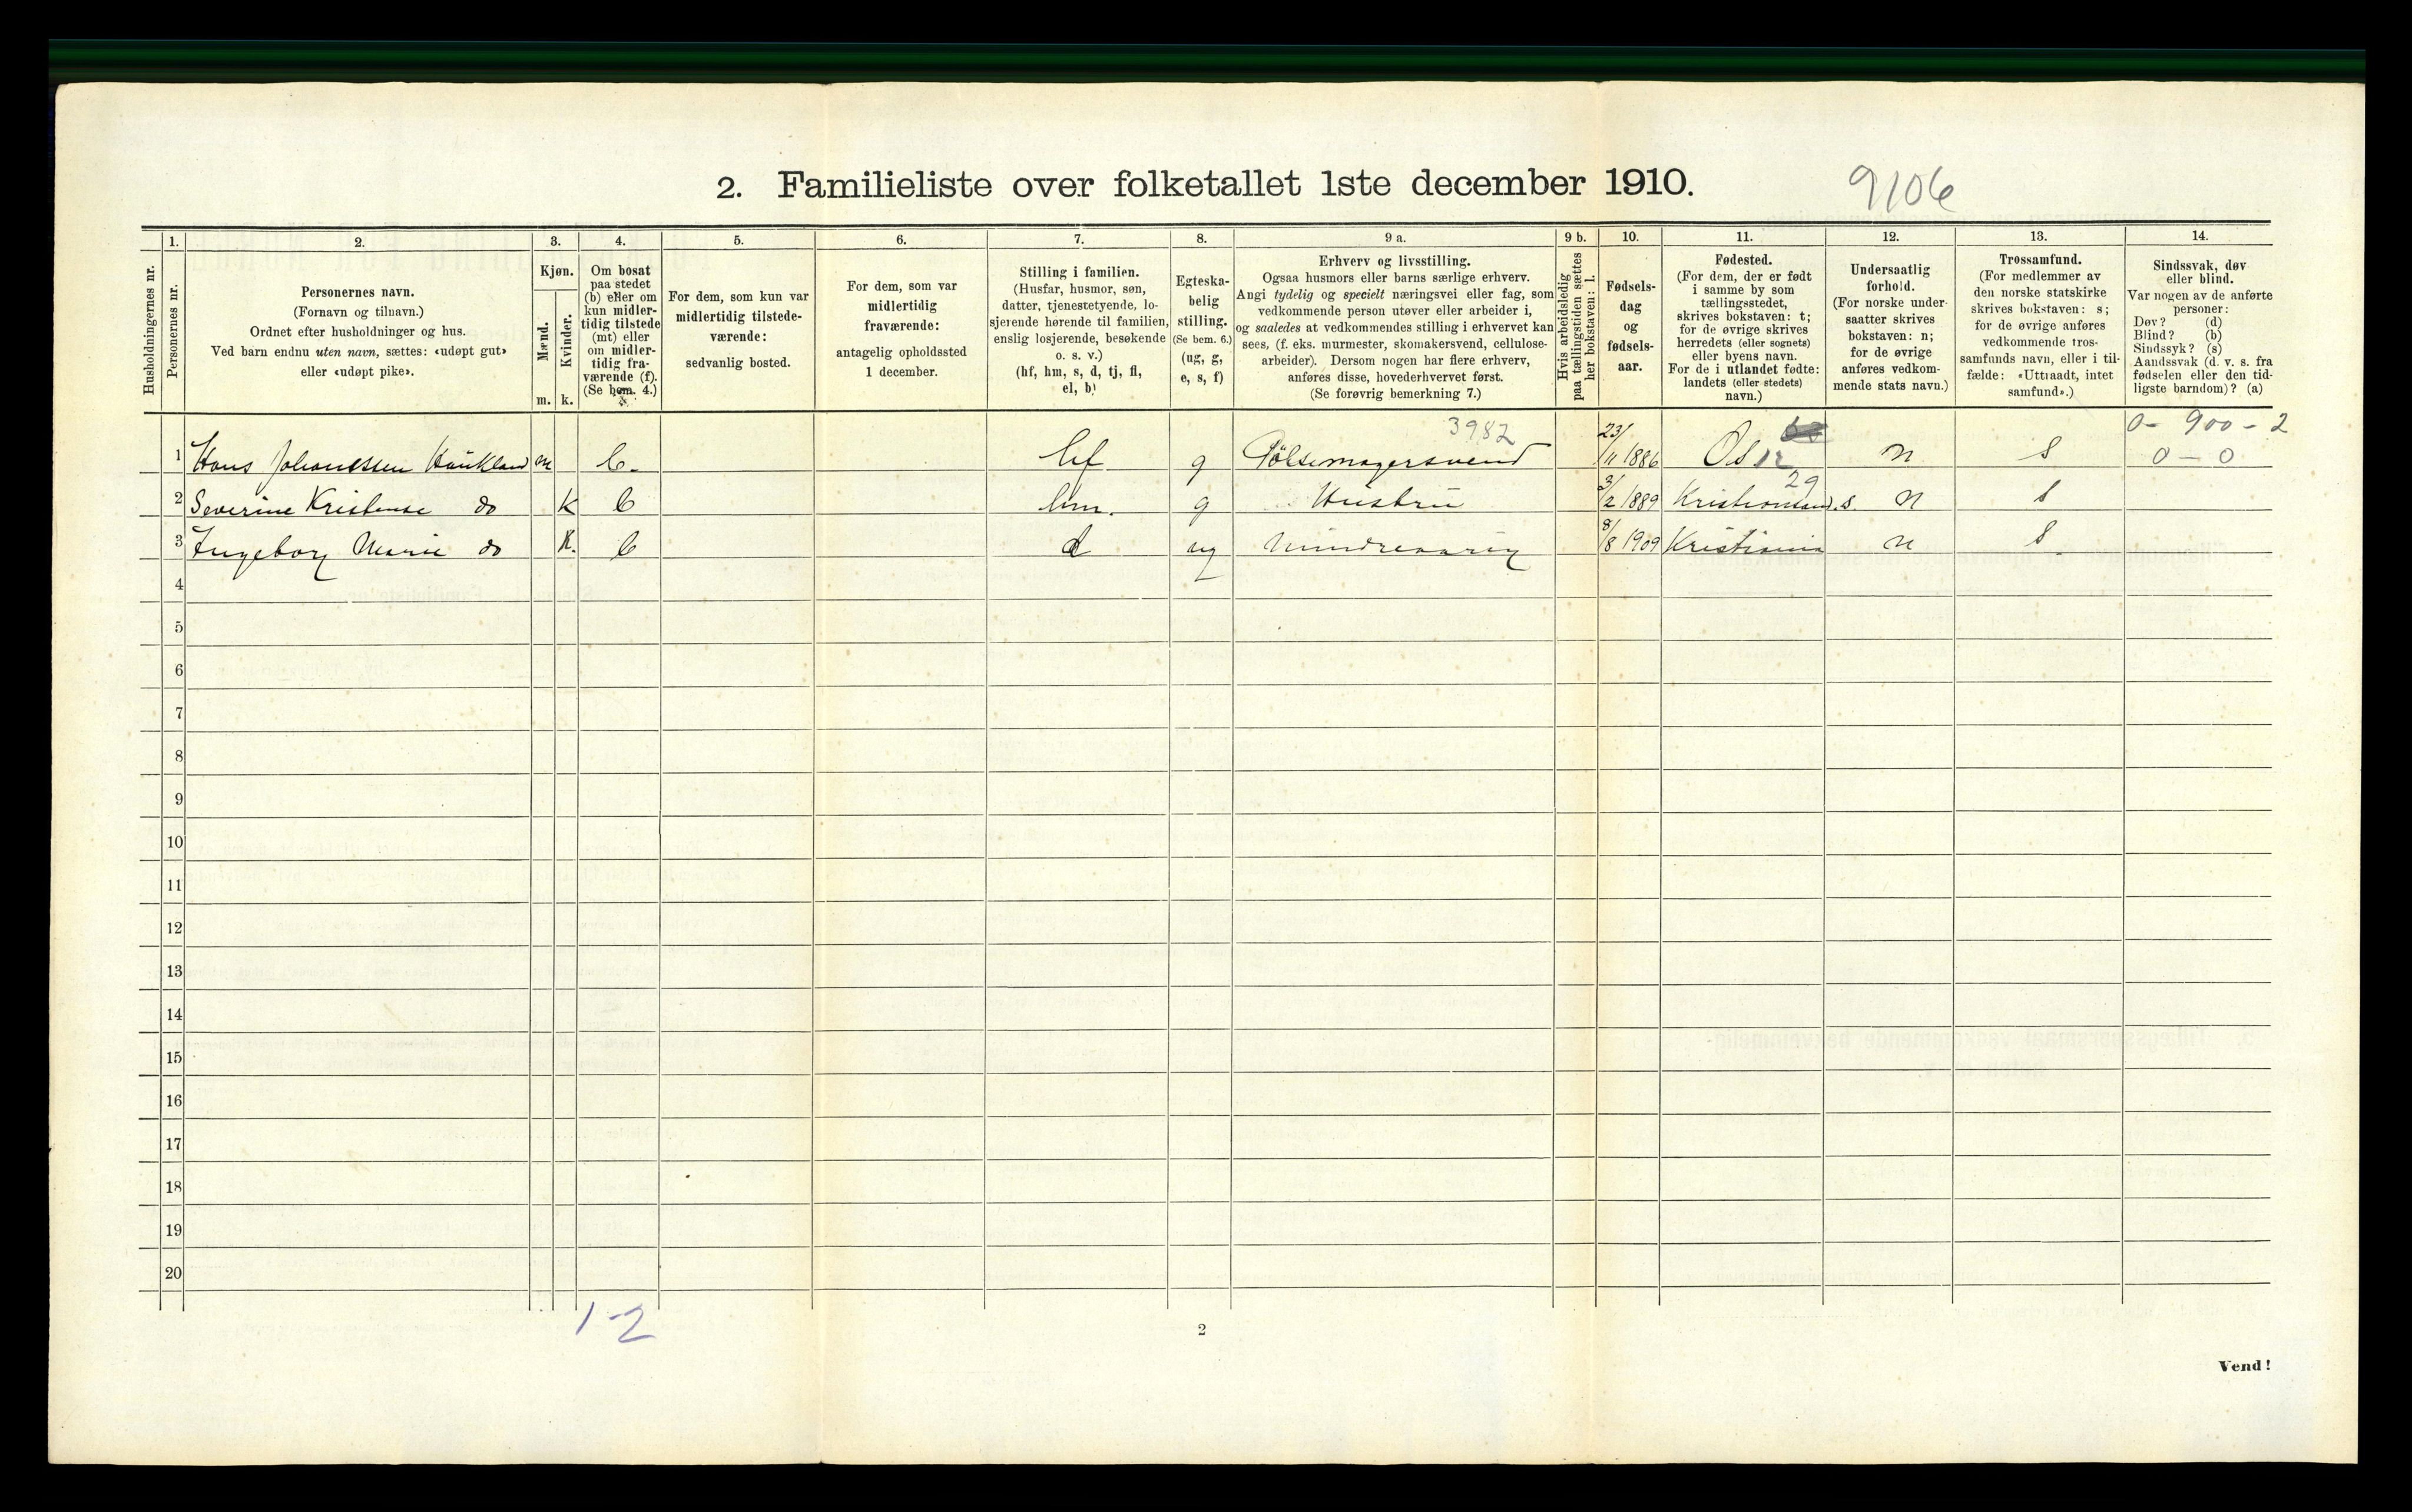 2. Familieliste over folketallet 1ste december 1910.
9106
1. 2. 3. 4. 5. 6. 7. 8. 9 a. 9 b. 10. 11. 12. 13. 14.
Husholdningernes nr.
Personernes nr.
Personernes navn.
(Fornavn og tilnavn.)
Ordnet efter husholdninger og hus.
Ved barn endnu uten navn, sættes: «udøpt gut»
eller «udøpt pike».
Kjøn.
Mænd.
Kvinder.
m. k.
Om bosat
paa stedet
(b) eller om
kun midler-
tidig tilstede
(mt) eller
om midler-
tidig fra-
værende (f).
(Se bem. 4.)
For dem, som kun var
midlertidig tilstede-
værende:
sedvanlig bosted.
For dem, som var
midlertidig
fraværende:
antagelig opholdssted
1 december.
Stilling i familien.
(Husfar, husmor, søn,
datter, tjenestetyende, lo-
sjerende hørende til familien,
enslig losjerende, besøkende
o. s. v.)
(hf, hm, s, d, tj, fl,
el, b)
Egteska-
belig
stilling.
(Se bem. 6.)
(ug, g,
e, s, f)
Erhverv og livsstilling.
Ogsaa husmors eller barns særlige erhverv.
Angi tydelig og specielt næringsvei eller fag, som
vedkommende person utøver eller arbeider i,
og saaledes at vedkommendes stilling i erhvervet kan
sees, (f. eks. murmester, skomakersvend, cellulose-
arbeider). Dersom nogen har flere erhverv,
anføres disse, hovederhvervet først.
(Se forøvrig bemerkning 7.)
Hvis arbeidsledig
paa tællingstiden sættes
her bokstaven: l.
Fødsels-
dag
og
fødsels-
aar.
Fødested.
(For dem, der er født
i samme by som
tællingsstedet,
skrives bokstaven: t;
for de øvrige skrives
herredets (eller sognets)
eller byens navn.
For de i utlandet fødte:
landets (eller stedets)
navn.)
Undersaatlig
forhold.
(For norske under-
saatter skrives
bokstaven: n;
for de øvrige
anføres vedkom-
mende stats navn.)
Trossamfund.
(For medlemmer av
den norske statskirke
skrives bokstaven: s;
for de øvrige anføres
vedkommende tros-
samfunds navn, eller i til-
fælde: «Uttraadt, intet
samfund».)
Sindssvak, døv
eller blind.
Var nogen av de anførte
personer:
Døv? (d)
Blind? (b)
Sindssyk? (s)
Aandssvak (d. v. s. fra
fødselen eller den tid-
ligste barndom)? (a)
3982 0 - 900 - 2
1 Hans Johanessen Haukland m b. hf g Pölsemagersvend 23/11 1886 Os 12 n s 0 - 0
29
2 Severine Kristense do k b hm. g Hustru 3/2 1889 Kristiansand. s. n s
3 Ingeborg Marie do k. b d ug Mindreaarig 8/8 1909 Kristiania n s
4
5
6
7
8
9
10
11
12
13
14
15
16
17
18
19
20
1-2
2
Vend!